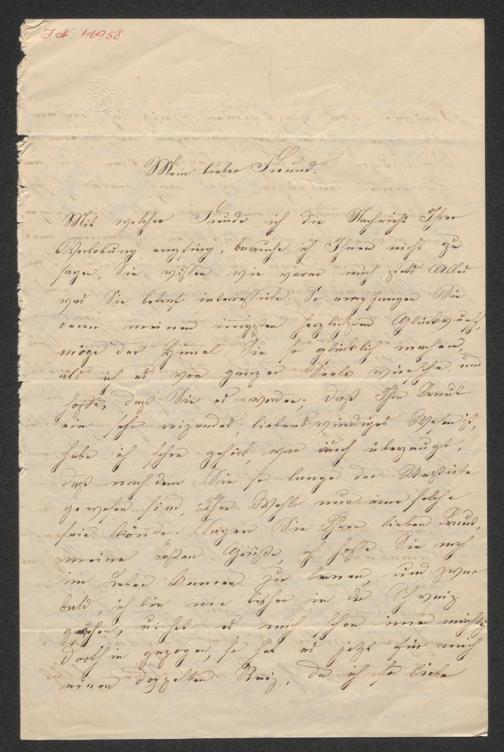 I.N. 46958
Mein lieber Freund.
Mit welcher Freude ich die Nachricht Ihrer
Verlobung empfing, brauche ich Ihnen nicht zu
sagen, Sie wissen wie warm mich stets Alles
was Sie betraf interessirte. So empfangen Sie
denn meinen innigsten herzlichsten Glückwunsch,
möge der Himmel Sie so glücklich machen,
als ich es von ganzer Seele wünsche und
hoffe, daß Sie es werden; daß Ihre Braut
ein sehr reizendes liebenswürdiges Wesen ist,
habe ich schon gehört, war auch überzeugt,
daß nachdem Sie so lange der
gewesen sind, Ihre Wahl nur eine solche
sein könnte. Sagen Sie Ihrer lieben Braut,
meine besten Grüße, ich hoffe Sie noch
im Leben kennen zu lernen, und zwar
bald, ich bin nie bisher in der Schweiz
gewesen, es mich schon immer mächtig
dorthin gezogen, so hat es jetzt für mich
einen doppelten Reiz, da ich so liebe